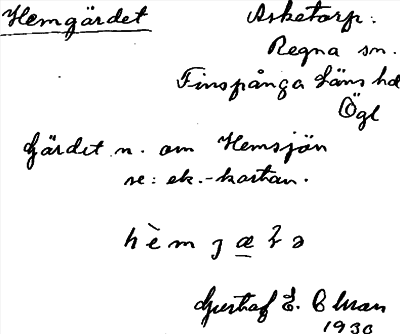 Hemgärdet
Asketorp.
Regna sn.
Finspånga läns hd
Ögl
Gärdet n. om Hemsjön
se: ek.-kartan.
Gustaf E.
1930